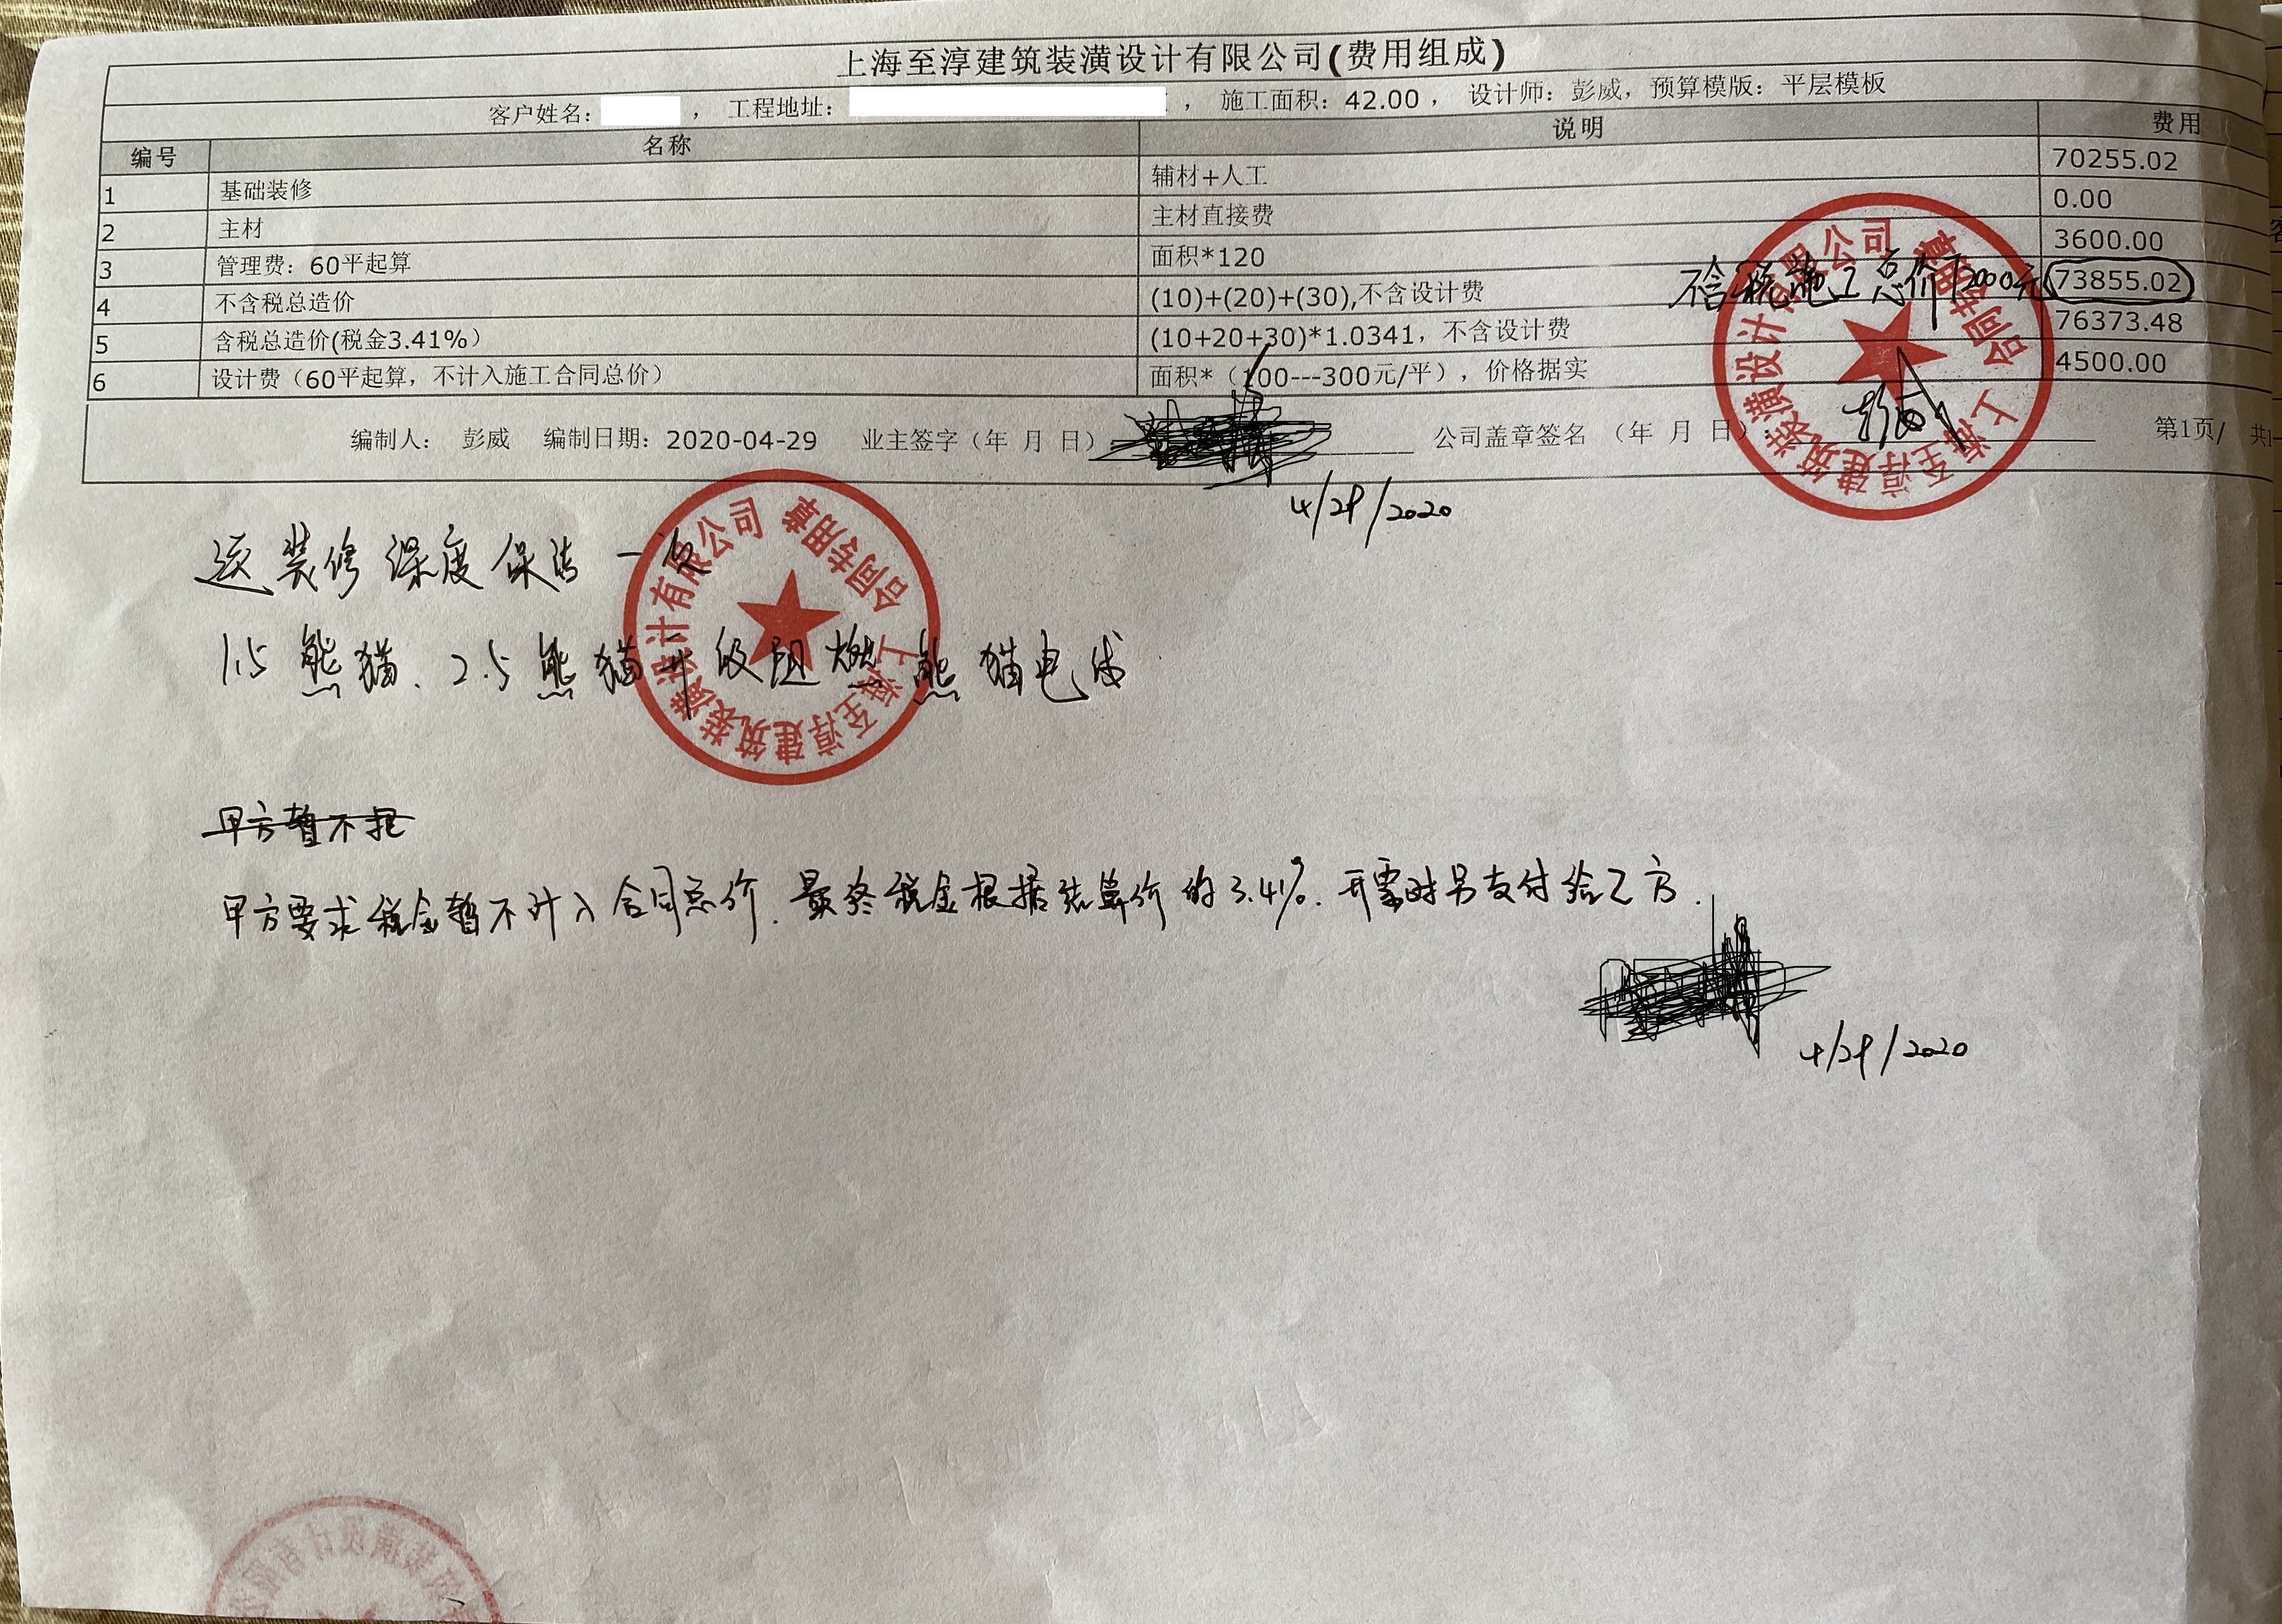 上海至淳建筑装潢设计有限公司(费用组成)
客户姓名： ， 工程地址： ， 施工面积：42.00 ， 设计师：彭威，预算模版：平层模板
编号 名称 说明 费用
1 基础装修 辅材+人工 70255.02
2 主材 主材直接费 0.00
3 管理费：60平起算 面积*120 3600.00
4 不含税总造价 (10)+(20)+(30),不含设计费 不含税施工总价72000元 73855.02
5 含税总造价(税金3.41%） (10+20+30)*1.0341，不含设计费 76373.48
6 设计费（60平起算，不计入施工合同总价） 面积*（100---300元/平），价格据实 4500.00
编制人： 彭威 编制日期：2020-04-29 业主签字（年 月 日） 公司盖章签名 （年 月 日）： 第1页/ 共
上海至淳建筑装潢设计有限公司 合同专用章
彭威
4/29/2020
送装修深度保洁一次
上海至淳建筑装潢设计有限公司 合同专用章
1.5熊猫、2.5熊猫升级阻燃熊猫电线
甲方暂不把
甲方要求税金暂不计入合同总价.最终税金根据结算价的3.41%.开票时另支付给乙方.
4/29/2020